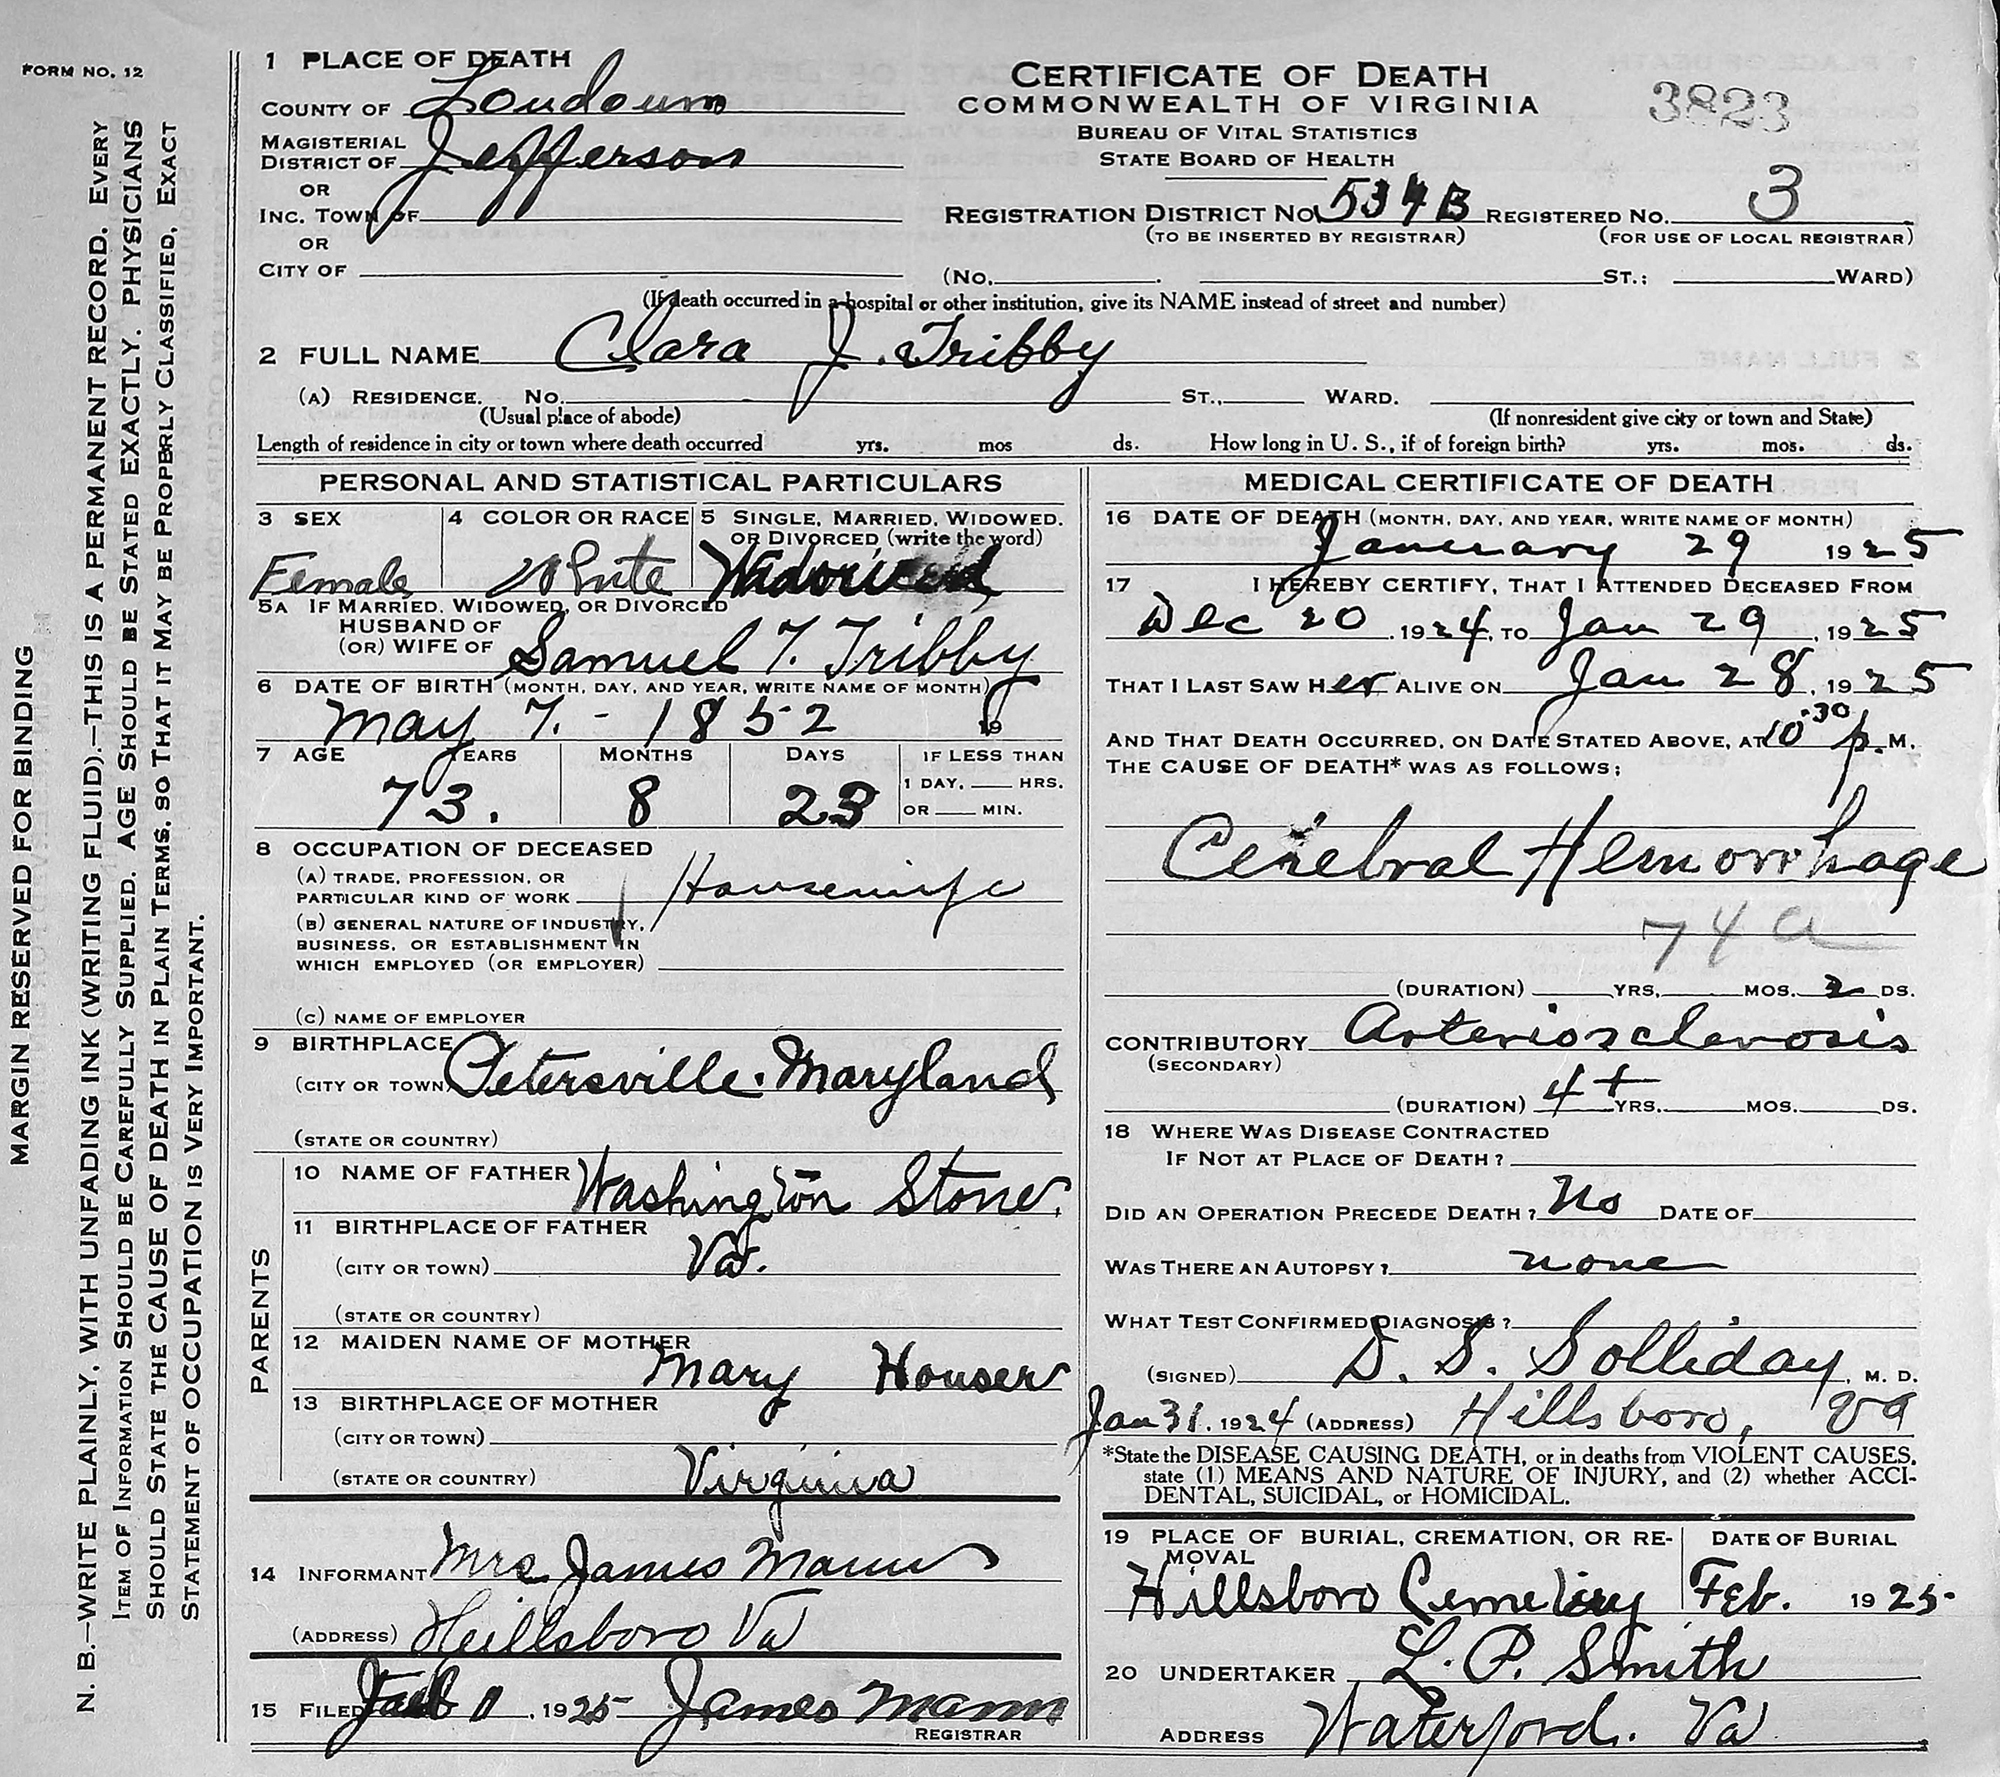 FORM NO. 12
MARGIN RESERVED FOR BINDING
N. B.—WRITE PLAINLY, WITH UNFADING INK (WRITING FLUID).—THIS IS A PERMANENT RECORD. EVERY
ITEM OF INFORMATION SHOULD BE CAREFULLY SUPPLIED. AGE SHOULD BE STATED EXACTLY. PHYSICIANS
SHOULD STATE THE CAUSE OF DEATH IN PLAIN TERMS, SO THAT IT MAY BE PROPERLY CLASSIFIED. EXACT
STATEMENT OF OCCUPATION IS VERY IMPORTANT.
1 PLACE OF DEATH
COUNTY OF Loudoun
MAGISTERIAL
DISTRICT OF Jefferson
OR
INC. TOWN OF
OR
CITY OF
CERTIFICATE OF DEATH
COMMONWEALTH OF VIRGINIA
BUREAU OF VITAL STATISTICS
STATE BOARD OF HEALTH
3823
REGISTRATION DISTRICT NO. 534B REGISTERED NO. 3
(TO BE INSERTED BY REGISTRAR) (FOR USE OF LOCAL REGISTRAR)
(NO. ST.; WARD)
(If death occurred in a hospital or other institution, give its NAME instead of street and number)
2 FULL NAME Clara J. Tribby
(A) RESIDENCE. NO. ST., WARD.
(Usual place of abode) (If nonresident give city or town and State)
Length of residence in city or town where death occurred yrs. mos ds. How long in U. S., if of foreign birth? yrs. mos. ds.
PERSONAL AND STATISTICAL PARTICULARS
3 SEX 4 COLOR OR RACE 5 SINGLE, MARRIED, WIDOWED,
OR DIVORCED (write the word)
Female White Widowed
5A IF MARRIED, WIDOWED, OR DIVORCED
HUSBAND OF
(OR) WIFE OF Samuel T. Tribby
6 DATE OF BIRTH (MONTH, DAY, AND YEAR, WRITE NAME OF MONTH)
May 7. - 1852 19
7 AGE YEARS MONTHS DAYS IF LESS THAN
1 DAY, HRS.
73. 8 23 OR MIN.
8 OCCUPATION OF DECEASED
(A) TRADE, PROFESSION, OR
PARTICULAR KIND OF WORK Housewife
(B) GENERAL NATURE OF INDUSTRY,
BUSINESS, OR ESTABLISHMENT IN
WHICH EMPLOYED (OR EMPLOYER)
(C) NAME OF EMPLOYER
9 BIRTHPLACE
(CITY OR TOWN) Petersville. Maryland
(STATE OR COUNTRY)
PARENTS
10 NAME OF FATHER Washington Stone.
11 BIRTHPLACE OF FATHER
(CITY OR TOWN) Va.
(STATE OR COUNTRY)
12 MAIDEN NAME OF MOTHER
Mary Houser
13 BIRTHPLACE OF MOTHER
(CITY OR TOWN)
(STATE OR COUNTRY) Virginia
14 INFORMANT Mrs James Mann
(ADDRESS) Hillsboro Va
15 FILED 1925 James Mann
REGISTRAR
MEDICAL CERTIFICATE OF DEATH
16 DATE OF DEATH (MONTH, DAY, AND YEAR, WRITE NAME OF MONTH)
Januaray 29 1925
17 I HEREBY CERTIFY, THAT I ATTENDED DECEASED FROM
Dec 20 , 1924, TO Jan 29 , 1925
THAT I LAST SAW Her ALIVE ON Jan 28, 1925
AND THAT DEATH OCCURRED, ON DATE STATED ABOVE, AT 10-30 p. M.
THE CAUSE OF DEATH* WAS AS FOLLOWS:
Cerebral Hemorrhage
74a
(DURATION) YRS. MOS. 2 DS.
CONTRIBUTORY Arteriosclerosis
(SECONDARY)
(DURATION) 4+ YRS. MOS. DS.
18 WHERE WAS DISEASE CONTRACTED
IF NOT AT PLACE OF DEATH?
DID AN OPERATION PRECEDE DEATH? No DATE OF
WAS THERE AN AUTOPSY? none
WHAT TEST CONFIRMED DIAGNOSIS?
(SIGNED) D. S. Solliday, M. D.
Jan 31. 1924 (ADDRESS) Hillsboro, Va
*State the DISEASE CAUSING DEATH, or in deaths from VIOLENT CAUSES,
state (1) MEANS AND NATURE OF INJURY, and (2) whether ACCI-
DENTAL, SUICIDAL, or HOMICIDAL.
19 PLACE OF BURIAL, CREMATION, OR RE-
MOVAL DATE OF BURIAL
Hillsboro Cemetery Feb. 1925-
20 UNDERTAKER L. P. Smith
ADDRESS Waterford. Va